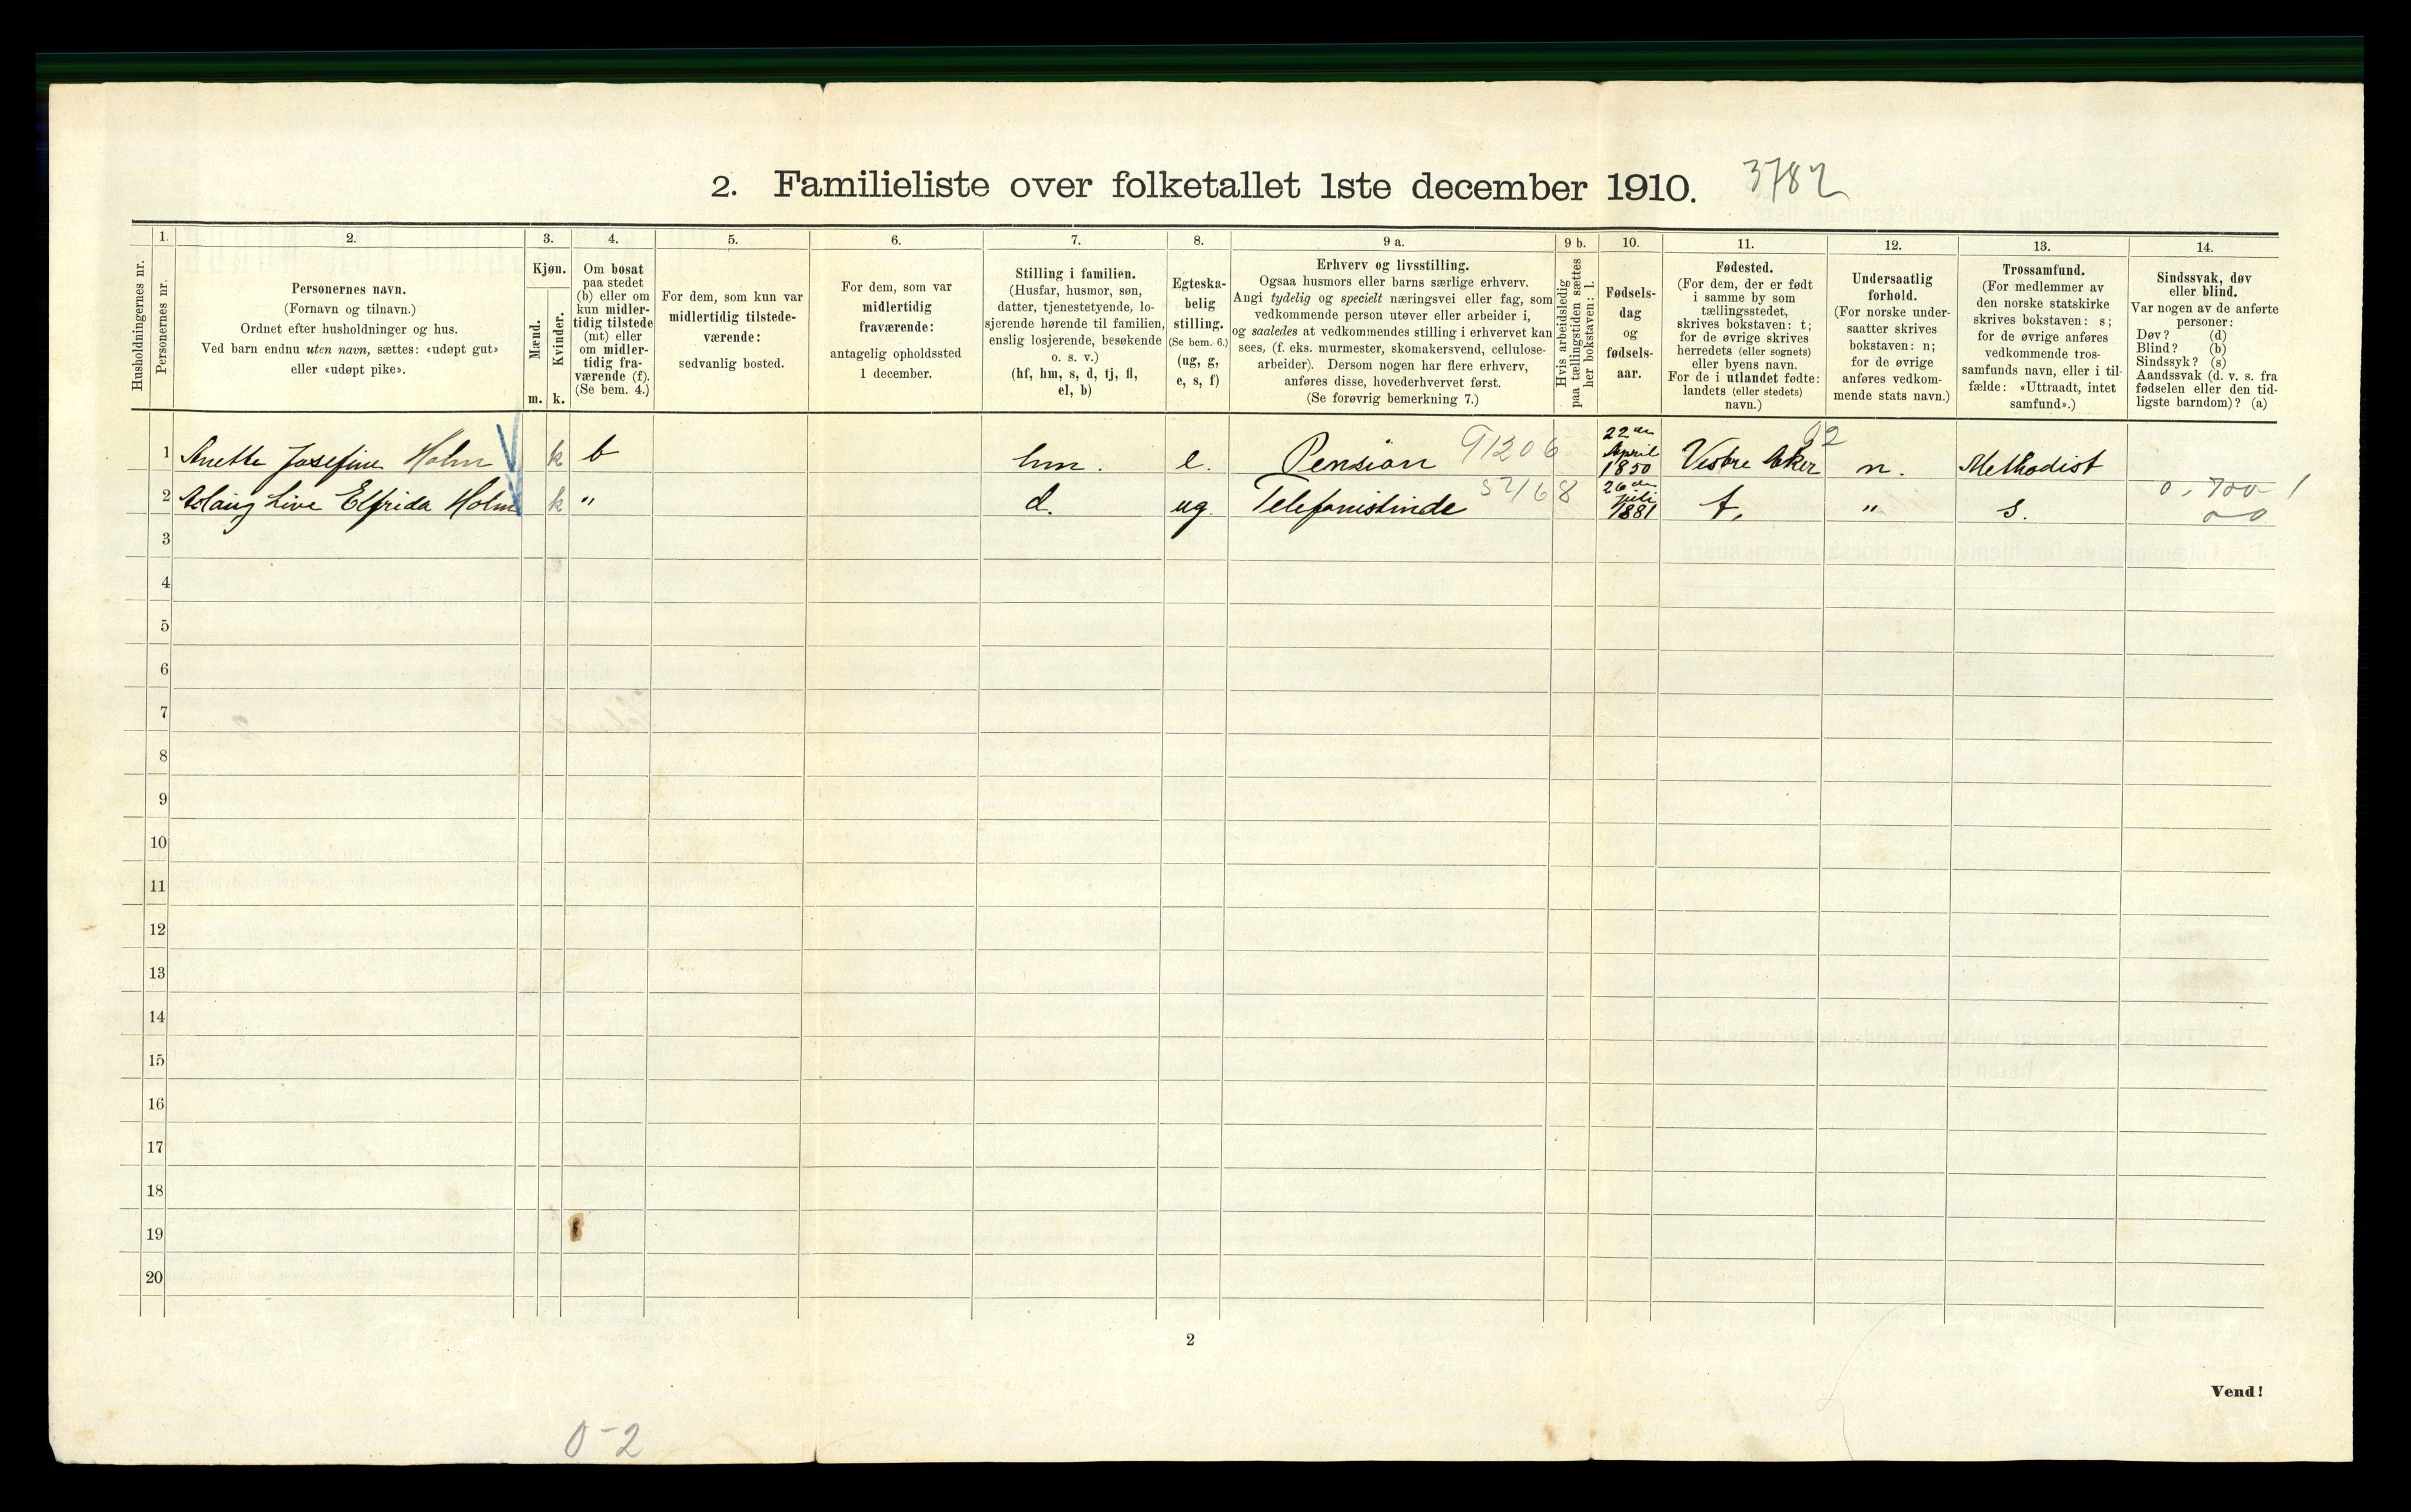 2. Familieliste over folketallet 1ste december 1910. 3782
1. 2. 3. 4. 5. 6. 7. 8. 9 a. 9 b. 10. 11. 12. 13. 14.
Husholdningernes nr.
Personernes nr.
Personernes navn.
(Fornavn og tilnavn.)
Ordnet efter husholdninger og hus.
Ved barn endnu uten navn, sættes: «udøpt gut»
eller «udøpt pike».
Kjøn.
Mænd.
Kvinder.
m. k.
Om bosat
paa stedet
(b) eller om
kun midler-
tidig tilstede
(mt) eller
om midler-
tidig fra-
værende (f).
(Se bem. 4.)
For dem, som kun var
midlertidig tilstede-
værende:
sedvanlig bosted.
For dem, som var
midlertidig
fraværende:
antagelig opholdssted
1 december.
Stilling i familien.
(Husfar, husmor, søn,
datter, tjenestetyende, lo-
sjerende hørende til familien,
enslig losjerende, besøkende
o. s. v.)
(hf, hm, s, d, tj, fl,
el, b)
Egteska-
belig
stilling.
(Se bem. 6.)
(ug, g,
e, s, f)
Erhverv og livsstilling.
Ogsaa husmors eller barns særlige erhverv.
Angi tydelig og specielt næringsvei eller fag, som
vedkommende person utøver eller arbeider i,
og saaledes at vedkommendes stilling i erhvervet kan
sees, (f. eks. murmester, skomakersvend, cellulose-
arbeider). Dersom nogen har flere erhverv,
anføres disse, hovederhvervet først.
(Se forøvrig bemerkning 7.)
Hvis arbeidsledig
paa tællingstiden sættes
her bokstaven: l.
Fødsels-
dag
og
fødsels-
aar.
Fødested.
(For dem, der er født
i samme by som
tællingsstedet,
skrives bokstaven: t;
for de øvrige skrives
herredets (eller sognets)
eller byens navn.
For de i utlandet fødte:
landets (eller stedets)
navn.)
Undersaatlig
forhold.
(For norske under-
saatter skrives
bokstaven: n;
for de øvrige
anføres vedkom-
mende stats navn.)
Trossamfund.
(For medlemmer av
den norske statskirke
skrives bokstaven: s;
for de øvrige anføres
vedkommende tros-
samfunds navn, eller i til-
fælde: «Uttraadt, intet
samfund».)
Sindssvak, døv
eller blind.
Var nogen av de anførte
personer:
Døv? (d)
Blind? (b)
Sindssyk? (s)
Aandssvak (d. v. s. fra
fødselen eller den tid-
ligste barndom)? (a)
1 Anette Josefine Holm k b hm. e. Pension 91206 22de April 1850 Vestre Aker 02 n. Methodist 0,700 1
2 Aslaug Live Elfrida Holm k " d. ug. Telefonistinde 26de juli 1881 t. " s. 00
3
4
5
6
7
8
9
10
11
12
13
14
15
16
17
18
19
20
2
Vend!
0-2